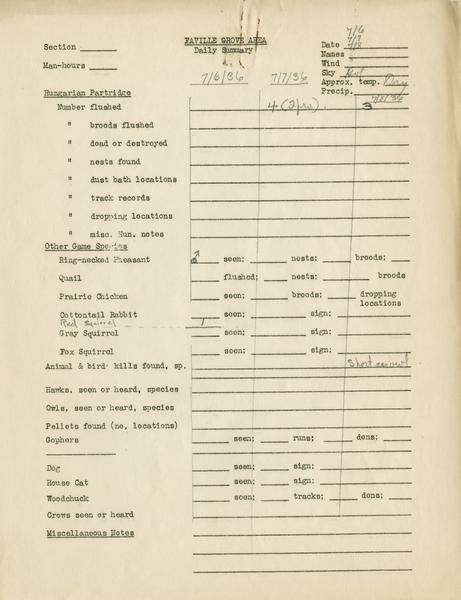 FAVILLE GROVE AREA
Daily Summary
7/6
7/7
7/8
Section
Date
Names
Man-hours
Wind
7/6/36 7/7/36
Sky Hot
Approx. temp. Dry
Precip.
7/8/36
Hungarian Partridge
Number flushed 4 (2 prs.) 3
" broods flushed
" dead or destroyed
" nests found
" dust bath locations
" track records
" dropping locations
" misc. Hun. notes
Other Game Species
Ring-necked Pheasant seen; nests; broods;
Quail flushed; nests; broods
Prairie Chicken seen; broods; dropping
locations
Cottontail Rabbit seen; sign;
Red Squirrel 1
Gray Squirrel seen; sign;
Fox Squirrel seen; sign;
Animal & bird kills found, sp. Short
Hawks, seen or heard, species
Owls, seen or heard, species
Pellets found (no, locations)
Gophers seen; runs; dens;
Dog seen; sign;
House Cat seen; sign;
Woodchuck seen; tracks; dens;
Crows seen or heard
Miscellaneous Notes